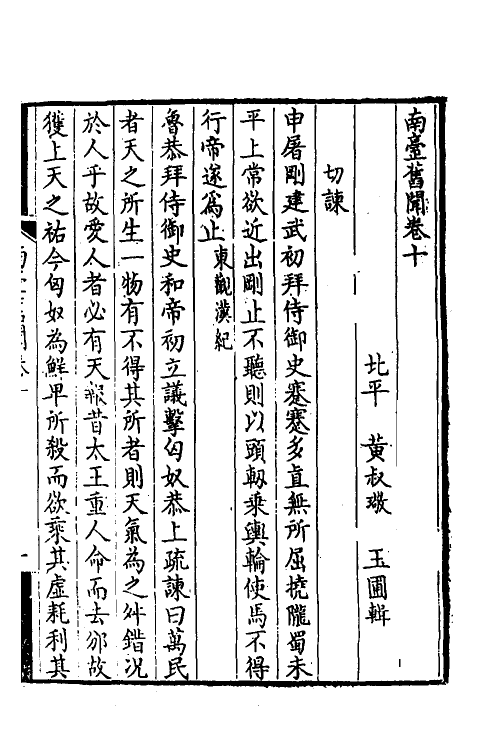 南臺舊聞卷十
北平　黃叔璥　玉圃輯
切諫
申屠剛建武初拜侍御史蹇蹇多直無所屈撓隴蜀未
平上常欲近出剛止不聽則以頭軔乘輿輪使馬不得
行帝遂為止東觀漢紀
魯恭拜侍御史和帝初立議擊匈奴恭上疏諫曰萬民
者天之所生一物有不得其所者則天氣為之舛錯况
於人乎故愛人者必有天報昔太王重人命而去邠故
獲上天之祐今匈奴為鮮卑所殺而欲乘其虛耗利其